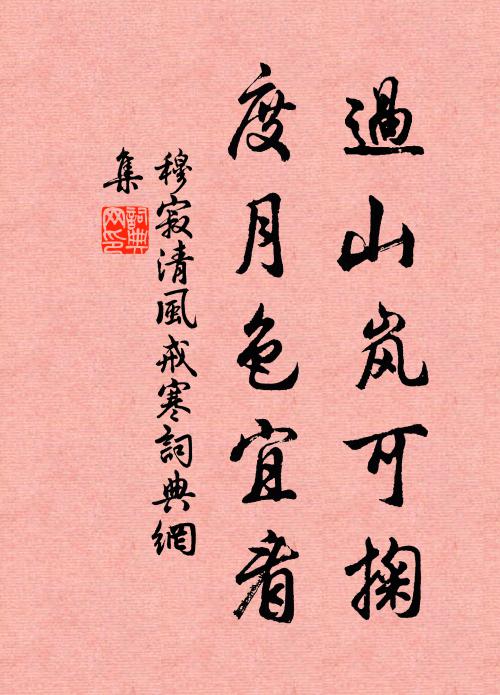 過山岚可掬
度月色宜看
穆寂清風戒寒詞典網
集
詞典网印